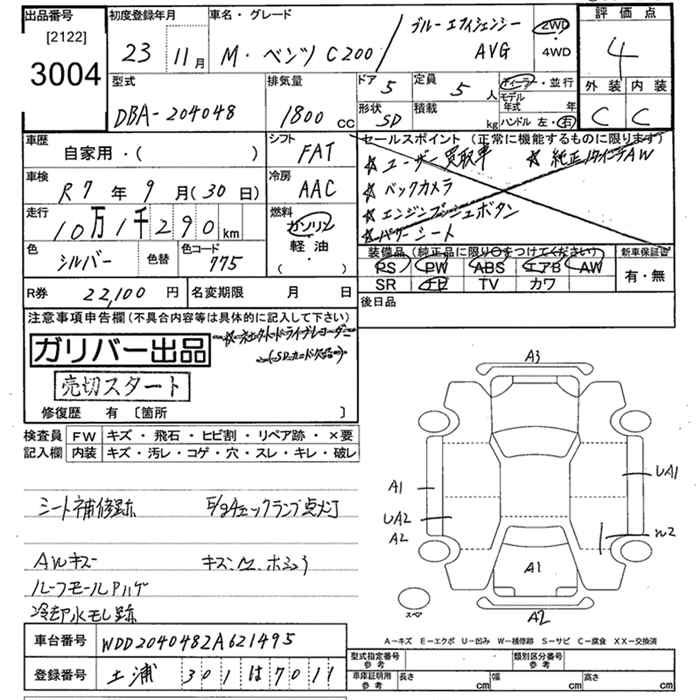 出品番号
[2122]
3004
初度登録年月
23 11月
車名・グレード
M・ベンツ C200
ブルーエフィシェンシー
AVG
2WD
・
4WD
評価点
4
外装 内装
C C
型式
DBA-204048
排気量
1800 cc
ドア 5
形状 SD
定員 5 人
積載 kg
ディーラー・並行
モデル年式 年
ハンドル 左・右
車歴
自家用・( )
シフト
FAT
車検
R7年9月(30日)
冷房
AAC
走行
10万1千290km
燃料
ガソリン
軽油・
( )
色
シルバー
色替
色コード
775
セールスポイント (正常に機能するものに限ります)
☆ユーザー買取車 ☆純正17インチAW
☆バックカメラ
☆エンジンプッシュボタン
☆パワーシート
装備品 (純正品に限り○をつけてください)
PS PW ABS エアB AW
SR ナビ TV カワ
新車保証書
有・無
R券 22,100円
名変期限 月 日
後日品
注意事項申告欄(不具合内容等は具体的に記入して下さい)
ガリバー出品
売切スタート
修復歴 有 〔箇所 〕
検査員
記入欄
FW キズ・飛石・ヒビ割・リペア跡・×要
内装 キズ・汚レ・コゲ・穴・スレ・キレ・破レ
シート補修跡 E/gチェックランプ点灯
AWキズ
ルーフモールPハゲ
冷却水モレ跡
A3
A1
UA2
A2
UA1
W2
A1
A2
スペア
A-キズ E-エクボ U-凹み W-補修跡 S-サビ C-腐食 XX-交換済
車台番号 WDD2040482A621495
登録番号 土浦 301 は 7011
型式指定番号
参考
類別区分番号
参考
車庫証明用
参考
長さ cm 幅 cm 高さ cm